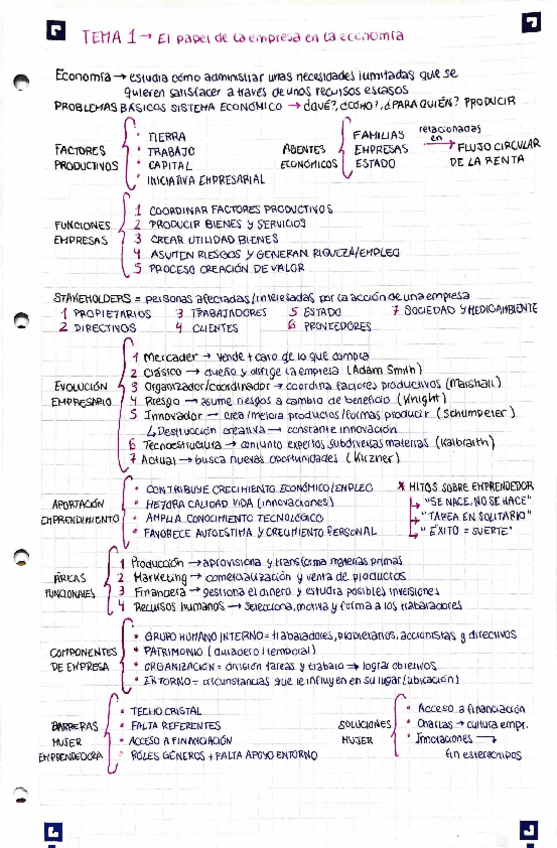 TEMA 1 → El papel de la empresa en la economía
Economía → estudia cómo administrar unas necesidades ilimitadas que se
quieren satisfacer a traves de unos recursos escasos
PROBLEMAS BÁSICOS SISTEMA ECONÓMICO → ¿QUÉ?, ¿CÓMO?, ¿PARA QUIÉN? PRODUCIR
FACTORES PRODUCTIVOS
• TIERRA
• TRABAJO
• CAPITAL
• INICIATIVA EMPRESARIAL
AGENTES ECONÓMICOS
FAMILIAS
EMPRESAS
ESTADO
relacionadas en → FLUJO CIRCULAR
DE LA RENTA
FUNCIONES EMPRESAS
1 COORDINAR FACTORES PRODUCTIVOS
2 PRODUCIR BIENES Y SERVICIOS
3 CREAR UTILIDAD BIENES
4 ASUMEN RIESGOS Y GENERAN RIQUEZA/EMPLEO
5 PROCESO CREACIÓN DE VALOR
STAKEHOLDERS = personas afectadas/interesadas por la acción de una empresa
1 PROPIETARIOS 3 TRABAJADORES 5 ESTADO 7 SOCIEDAD Y MEDIOAMBIENTE
2 DIRECTIVOS 4 CLIENTES 6 PROVEEDORES
EVOLUCIÓN EMPRESARIO
1 Mercader → vende + caro de lo que compra
2 Clásico → dueño y dirige la empresa (Adam Smith)
3 Organizador/coordinador → coordina factores productivos (Marshall)
4 Riesgo → asume riesgos a cambio de beneficio (Knight)
5 Innovador → crea/mejora productos/formas producir (Schumpeter)
↳ Destrucción creativa → constante innovación
6 Tecnoestructura → conjunto expertos subdiversas materias (Kalbraith)
7 Actual → busca nuevas oportunidades (Kirzner)
APORTACIÓN EMPRENDIMIENTO
• CONTRIBUYE CRECIMIENTO ECONÓMICO/EMPLEO
• MEJORA CALIDAD VIDA (innovaciones)
• AMPLIA CONOCIMIENTO TECNOLÓGICO
• FAVORECE AUTOESTIMA Y CRECIMIENTO PERSONAL
* MITOS SOBRE EMPRENDEDOR
↳ "SE NACE, NO SE HACE"
↳ "TAREA EN SOLITARIO"
↳ "ÉXITO = SUERTE"
ÁREAS FUNCIONALES
1 Producción → aprovisiona y transforma materias primas
2 Marketing → comercialización y venta de productos
3 Financiera → gestiona el dinero y estudia posibles inversiones
4 Recursos humanos → selecciona, motiva y forma a los trabajadores
COMPONENTES DE EMPRESA
• GRUPO HUMANO INTERNO = trabajadores, propietarios, accionistas y directivos
• PATRIMONIO (duradero | temporal)
• ORGANIZACIÓN = división tareas y trabajo → lograr objetivos
• ENTORNO = circunstancias que le influyen en su lugar (ubicación)
BARRERAS MUJER EMPRENDEDORA
• TECHO CRISTAL
• FALTA REFERENTES
• ACCESO A FINANCIACIÓN
• ROLES GÉNEROS + FALTA APOYO ENTORNO
SOLUCIONES MUJER
• Acceso a financiación
• Charlas → cultura empr.
• Innovaciones →
fin estereotipos